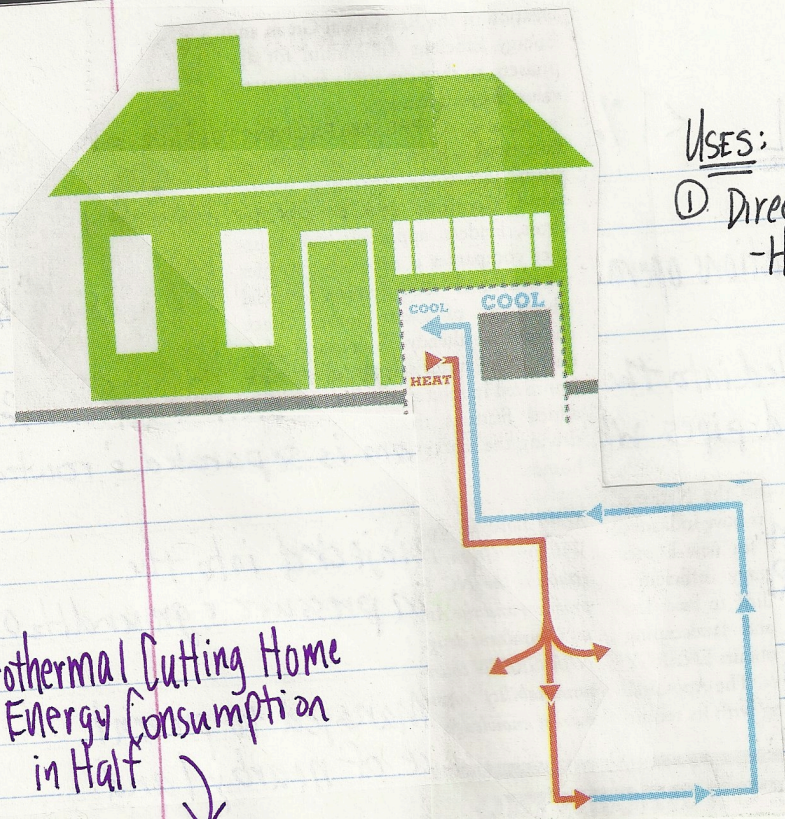 USES:
① Direc
-H
COOL
COOL
HEAT
othermal Cutting Home
Energy Consumption
in Half